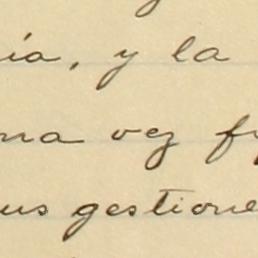 ía, y la
na vez f
us gestione